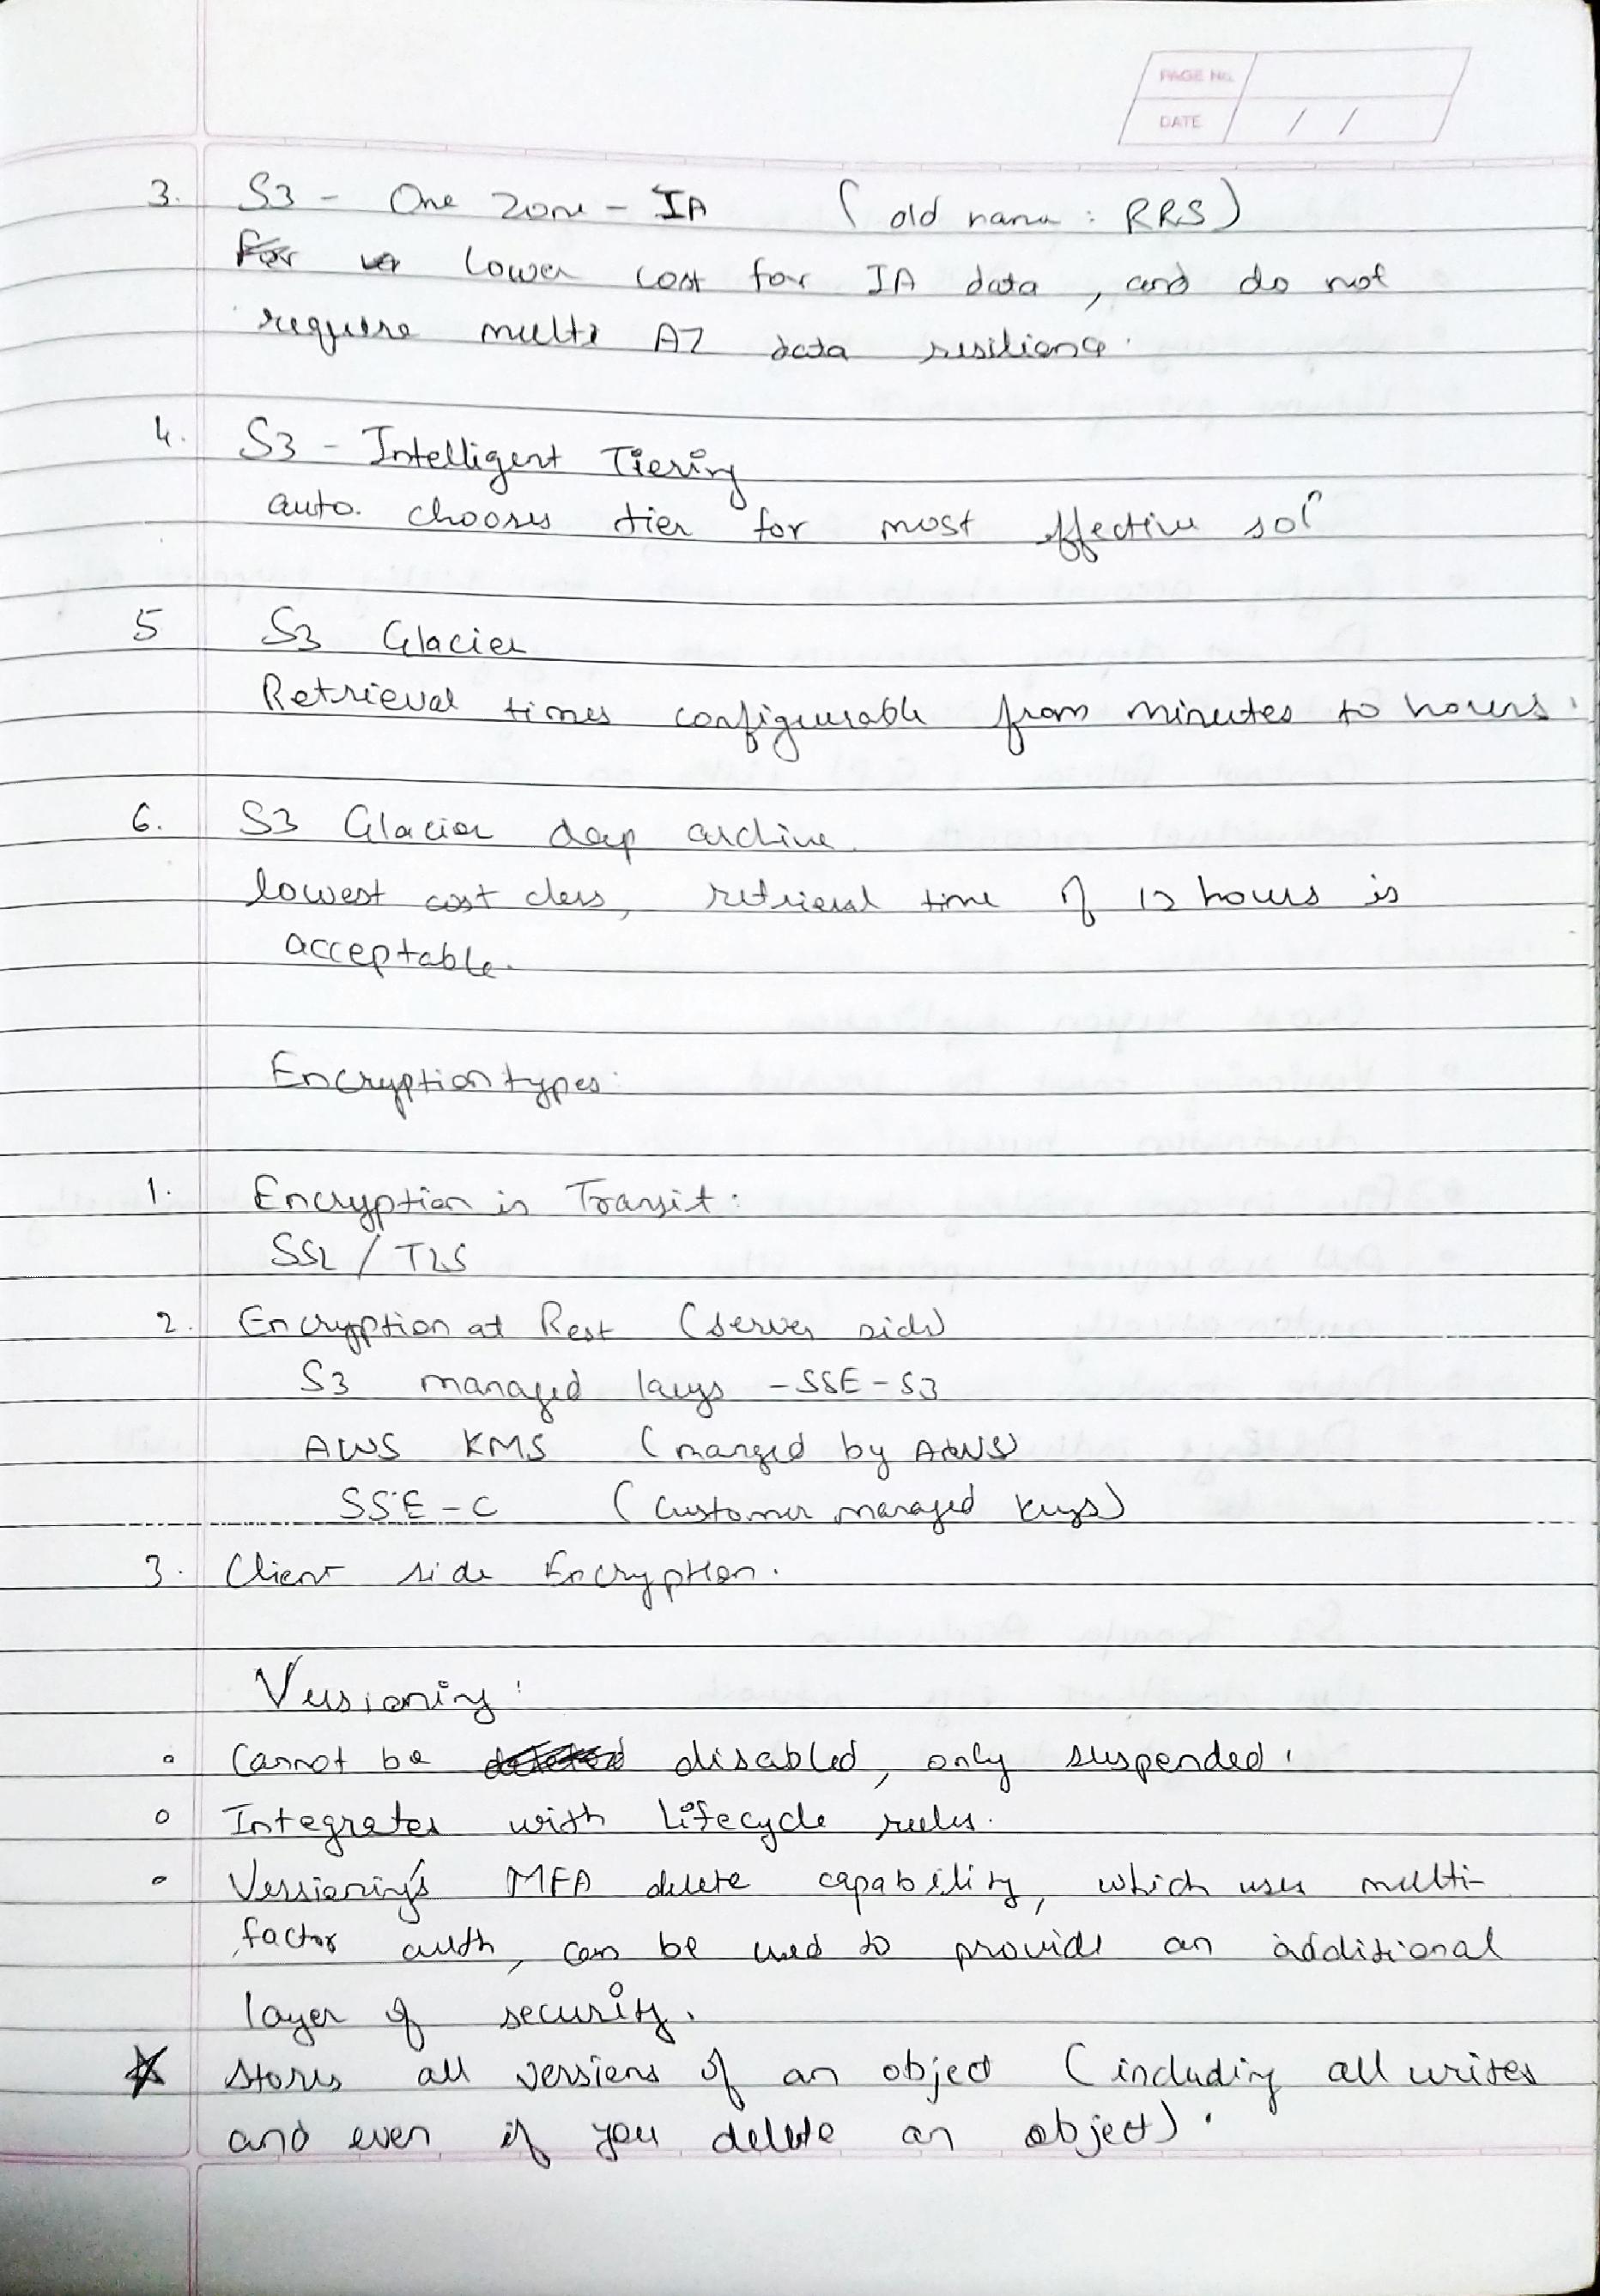 PAGE No.
DATE / /
3. S3 - One Zone - IA (old name : RRS)
For lower cost for IA data, and do not
require multi AZ data resilience.
4. S3 - Intelligent Tiering
auto. chooses tier for most effective solⁿ
5 S3 Glacier
Retrieval times configurable from minutes to hours.
6. S3 Glacier deep archive.
lowest cost class, retrieval time of 12 hours is
acceptable.
Encryption types:
1. Encryption in Transit:
SSL / TLS
2. Encryption at Rest (server side)
S3 managed keys - SSE-S3
AWS KMS (manged by AWS)
SSE-C (Customer managed keys)
3. Client side Encryption.
Versioning:
• Cannot be deleted disabled, only suspended.
• Integrates with Lifecycle rules.
• Versioning's MFA delete capability, which uses multi-
factor auth, can be used to provide an additional
layer of security.
☆ stores all versions of an object (including all writes
and even if you delete an object).